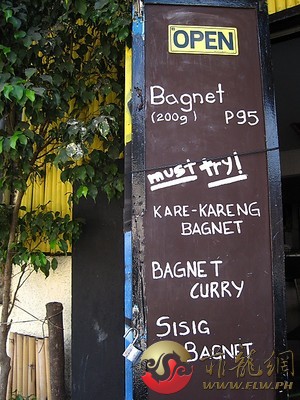 OPEN
Bagnet
(200g) P95
must try!
KARE-KARENG
BAGNET
BAGNET
CURRY
SISIG
BAGNET
菲龍網
WWW.FLW.PH